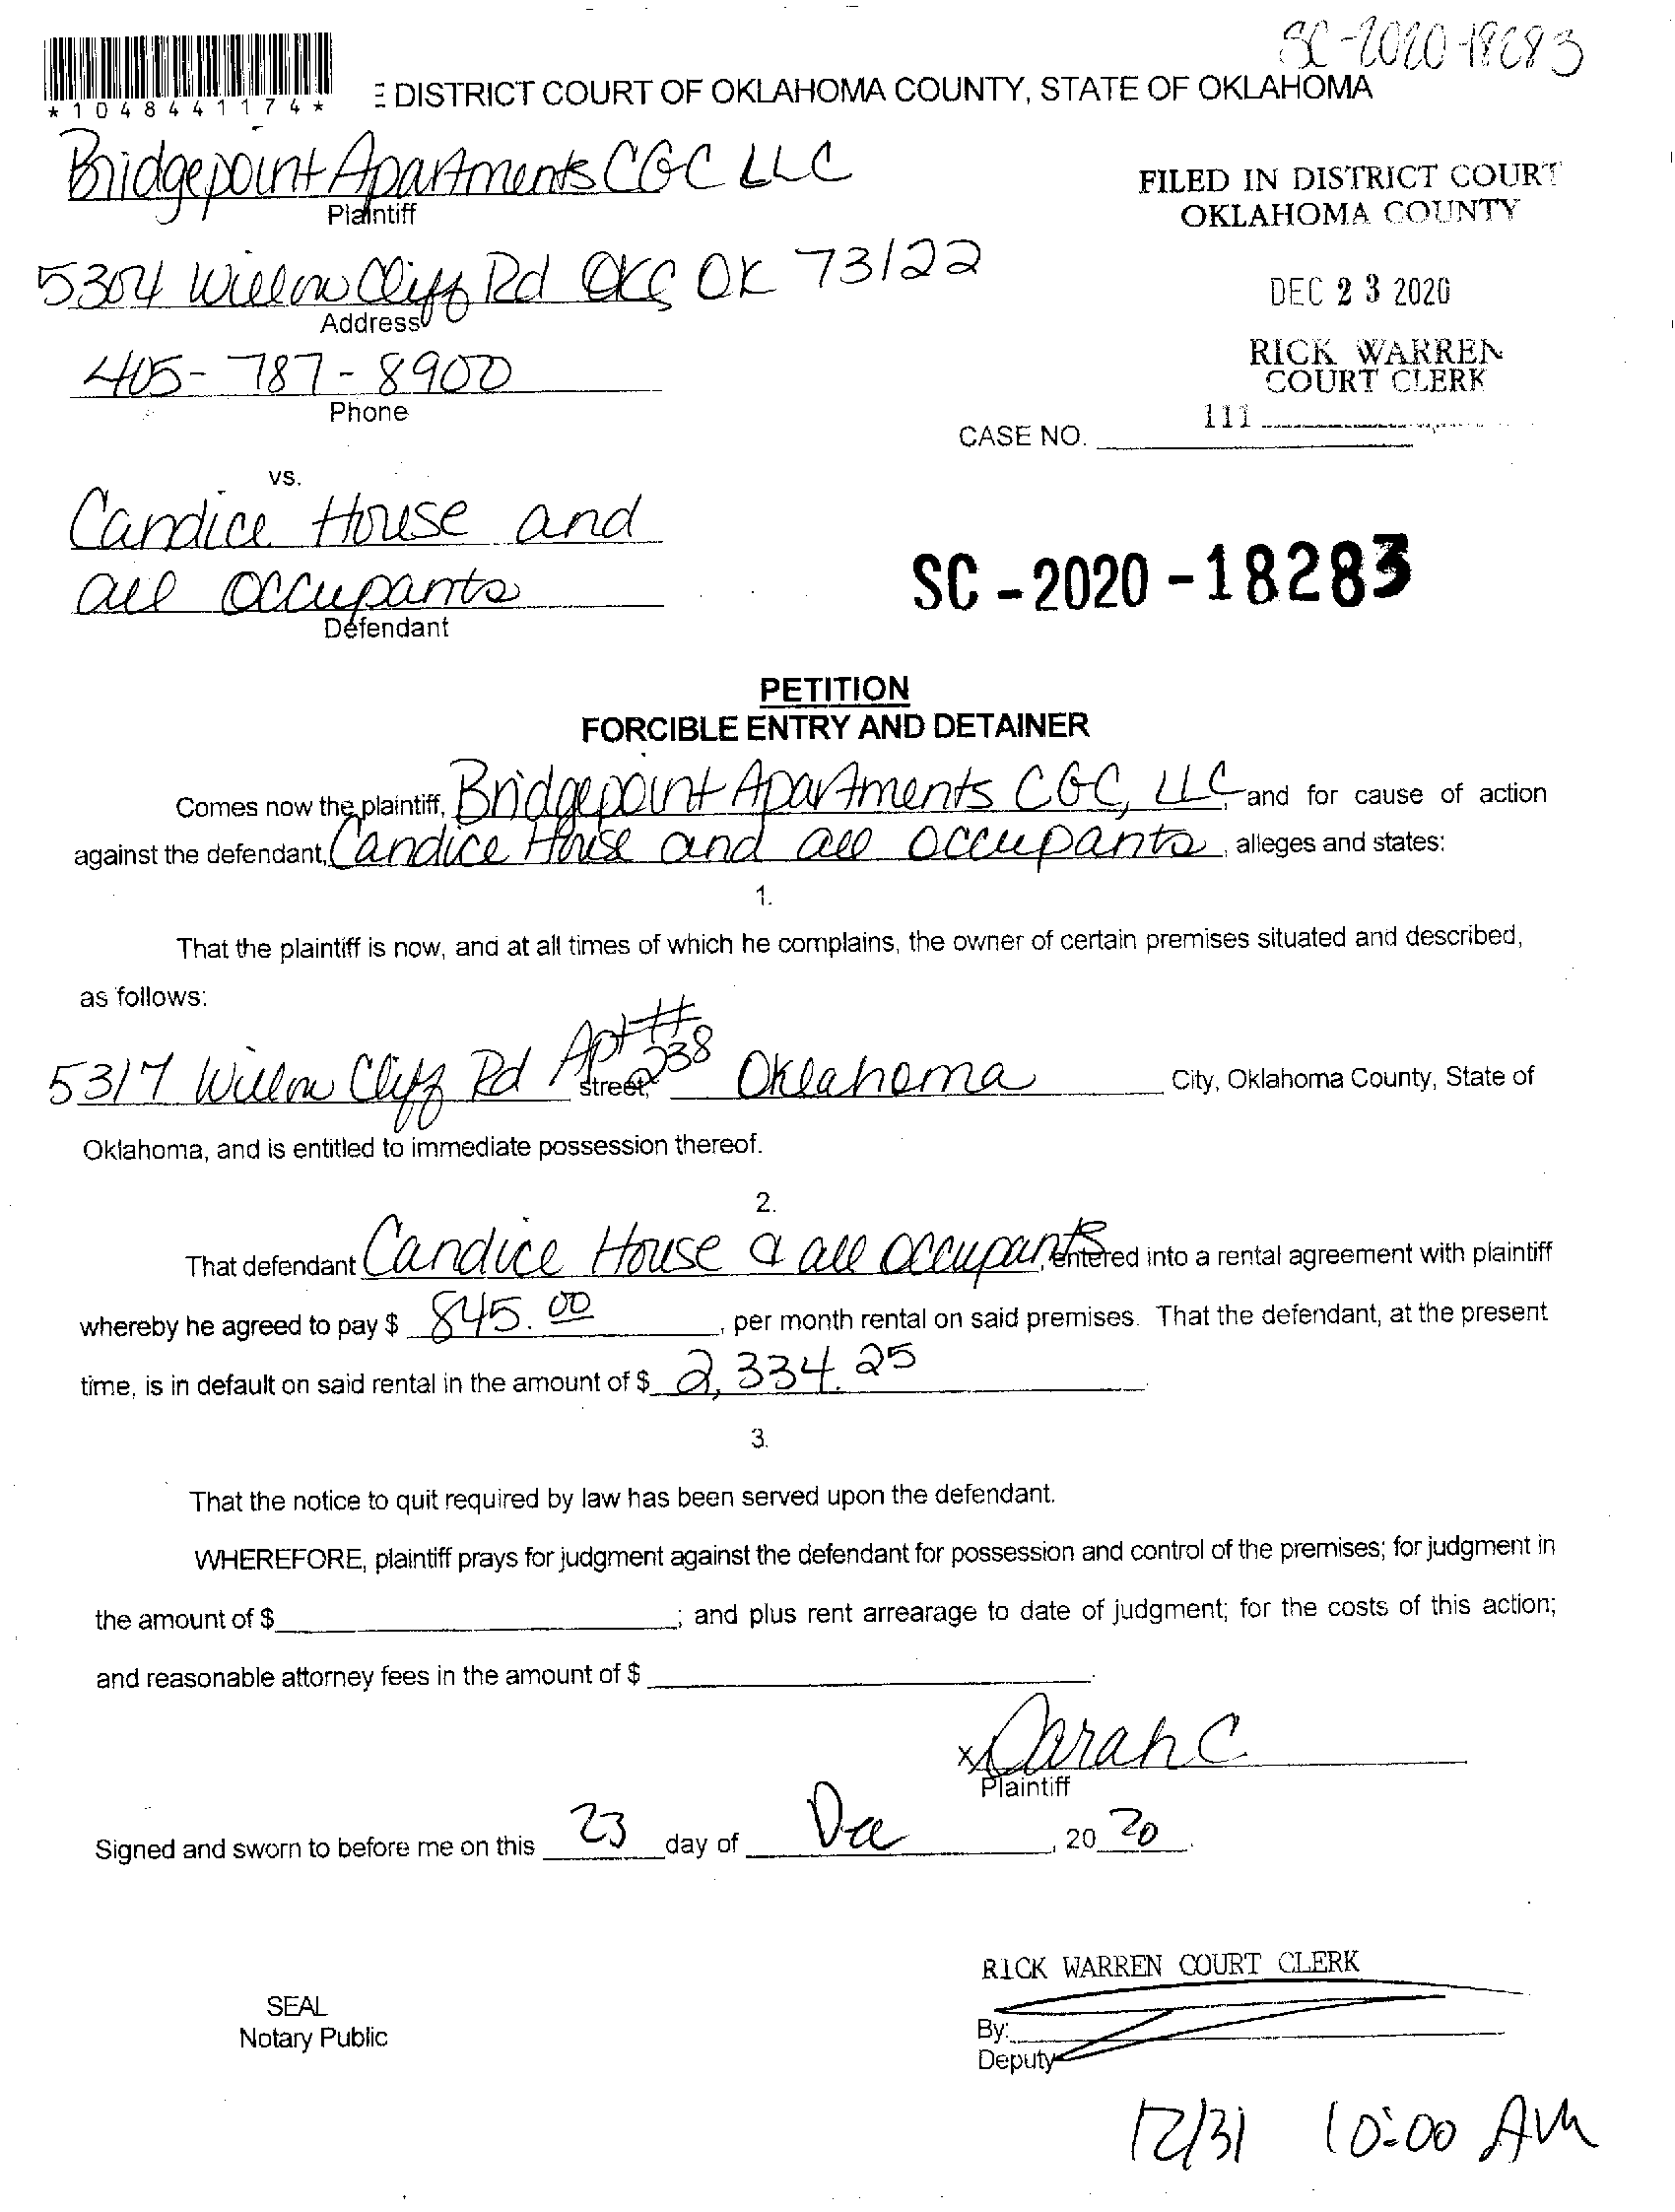 SC-2020-18283
*1048441174*
E DISTRICT COURT OF OKLAHOMA COUNTY, STATE OF OKLAHOMA
Bridgepoint Apartments CGC LLC
Plaintiff
FILED IN DISTRICT COURT
OKLAHOMA COUNTY
5304 Willow Cliff Rd OKC OK 73122
Address
DEC 23 2020
405-787-8900
Phone
RICK WARREN
COURT CLERK
111
CASE NO.
vs.
Candice House and
all occupants
Defendant
SC-2020-18283
PETITION
FORCIBLE ENTRY AND DETAINER
Comes now the plaintiff, Bridgepoint Apartments CGC, LLC, and for cause of action
against the defendant, Candice House and all occupants, alleges and states:
1.
That the plaintiff is now, and at all times of which he complains, the owner of certain premises situated and described,
as follows:
5317 Willow Cliff Rd Apt # 238 street, Oklahoma City, Oklahoma County, State of
Oklahoma, and is entitled to immediate possession thereof.
2.
That defendant Candice House & all occupants, entered into a rental agreement with plaintiff
whereby he agreed to pay $ 845.00, per month rental on said premises. That the defendant, at the present
time, is in default on said rental in the amount of $ 2,334.25.
3.
That the notice to quit required by law has been served upon the defendant.
WHEREFORE, plaintiff prays for judgment against the defendant for possession and control of the premises; for judgment in
the amount of $ ; and plus rent arrearage to date of judgment; for the costs of this action;
and reasonable attorney fees in the amount of $ .
x Sarah C
Plaintiff
Signed and sworn to before me on this 23 day of Dec, 20 20.
RICK WARREN COURT CLERK
SEAL
Notary Public
By:
Deputy
12/31 10:00 AM